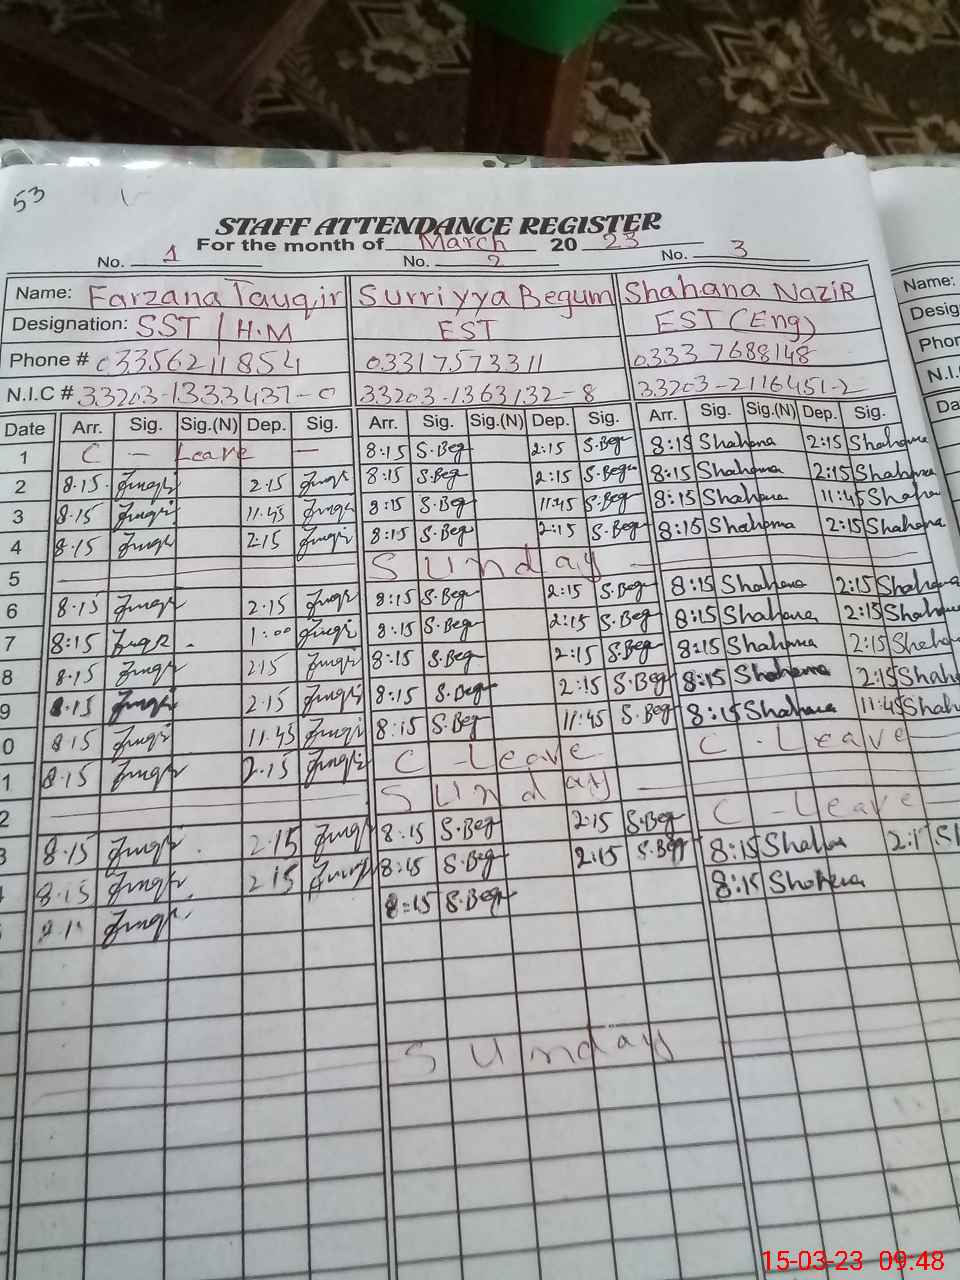 53
STAFF ATTENDANCE REGISTER
For the month of March 20 23
No. 1 No. 2 No. 3
Name: Farzana Tauqir Surriyya Begum Shahana Nazir
Designation: SST / H.M EST EST (Eng)
Phone # 03356211854 03317573311 0333 7688148
N.I.C # 33203-1333437-0 33203-1363132-8 33203-2116451-2
Date Arr. Sig. Sig.(N) Dep. Sig. Arr. Sig. Sig.(N) Dep. Sig. Arr. Sig. Sig.(N) Dep. Sig.
1 C - Leave - 8:15 S.Beg 2:15 S.Beg 8:15 Shahana 2:15 Shahana
2 8.15 2.15 8:15 S.Beg 2:15 S.Beg 8:15 Shahana 2:15 Shahana
3 8.15 11.45 8:15 S.Beg 11:45 S.Beg 8:15 Shahana 11:45 Shaha
4 8.15 2.15 8:15 S.Beg 2:15 S.Beg 8:15 Shahana 2:15 Shahana
5 Sunday
6 8.15 2.15 8:15 S.Beg 2:15 S.Beg 8:15 Shahana 2:15 Shahana
7 8:15 1:00 8:15 S.Beg 2:15 S.Beg 8:15 Shahana 2:15 Shahan
8 8.15 2.15 8:15 S.Beg 2:15 S.Beg 8:15 Shahana 2:15 Shaha
9 8.15 2.15 8:15 S.Beg 2:15 S.Beg 8:15 Shahana 2:15 Shah
0 8.15 11.45 8:15 S.Beg 11:45 S.Beg 8:15 Shahana 11:45 Shah
1 8.15 2.15 C - Leave C - Leave
2 Sunday
3 8.15 2.15 8:15 S.Beg 2:15 S.Beg C - Leave
8.15 2.15 8:15 S.Beg 2:15 S.Beg 8:15 Shahana 2:1 Sh
8:15 S.Beg 8:15 Shahana
Sunday
Name:
Desig
Phon
N.I.
Da
15-03-23 09:48